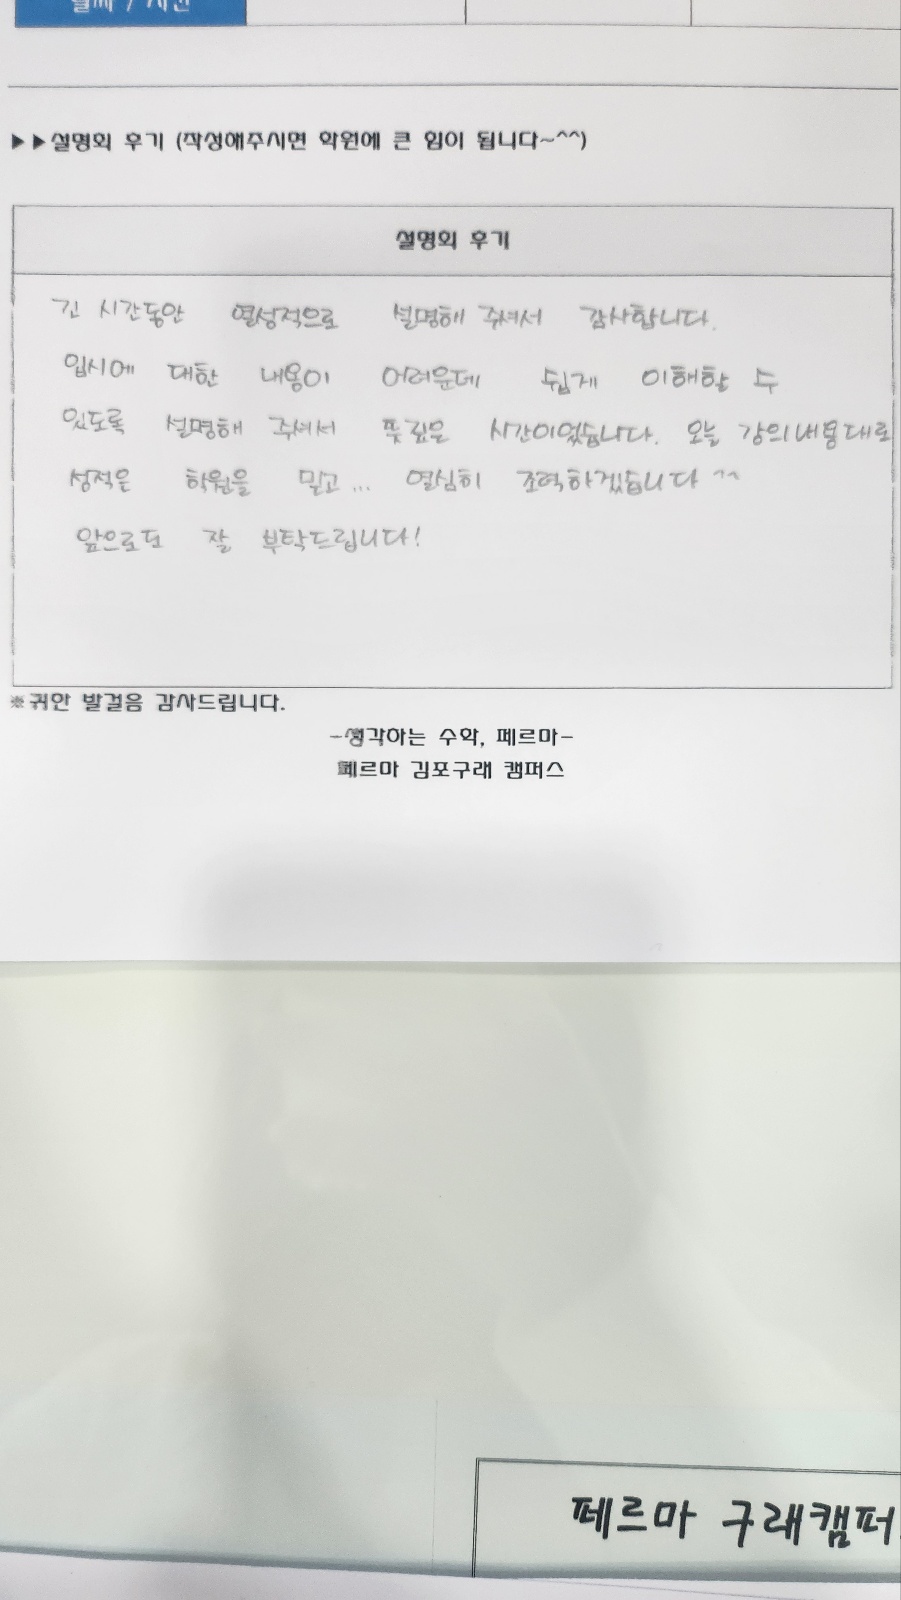 날짜 / 시간
▶▶설명회 후기 (작성해주시면 학원에 큰 힘이 됩니다~^^)
설명회 후기
긴 시간동안 열성적으로 설명해 주셔서 감사합니다.
입시에 대한 내용이 어려운데 쉽게 이해할 수
있도록 설명해 주셔서 뜻깊은 시간이었습니다. 오늘 강의내용대로
성적은 학원을 믿고... 열심히 조력하겠습니다 ^^
앞으로도 잘 부탁드립니다!
※귀안 발걸음 감사드립니다.
-생각하는 수학, 페르마-
페르마 김포구래 캠퍼스
페르마 구래캠퍼